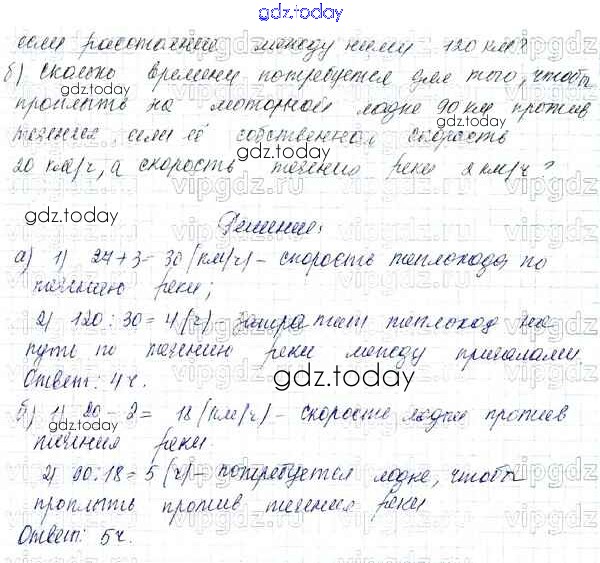 gdz.today
если расстояние между ними 120 км?
б) сколько времени потребуется для того, чтобы
проплыть на моторной лодке 90 км против
течения, если её собственная скорость
20 км/ч, а скорость течения реки 2 км/ч?
Решение:
а) 1) 27+3=30 (км/ч) - скорость теплохода по
течению реки;
2) 120:30=4 (ч) - затратит теплоход на
путь по течению реки между причалами.
Ответ: 4ч.
gdz.today
б) 1) 20-2= 18 (км/ч) - скорость лодки против
течения реки.
2) 90:18=5 (ч) - потребуется лодке, чтобы
проплыть против течения реки
Ответ: 5ч.